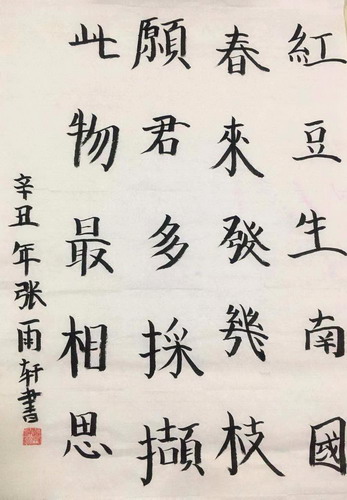 紅豆生南國
春來發幾枝
願君多採擷
此物最相思
辛丑年张雨轩書